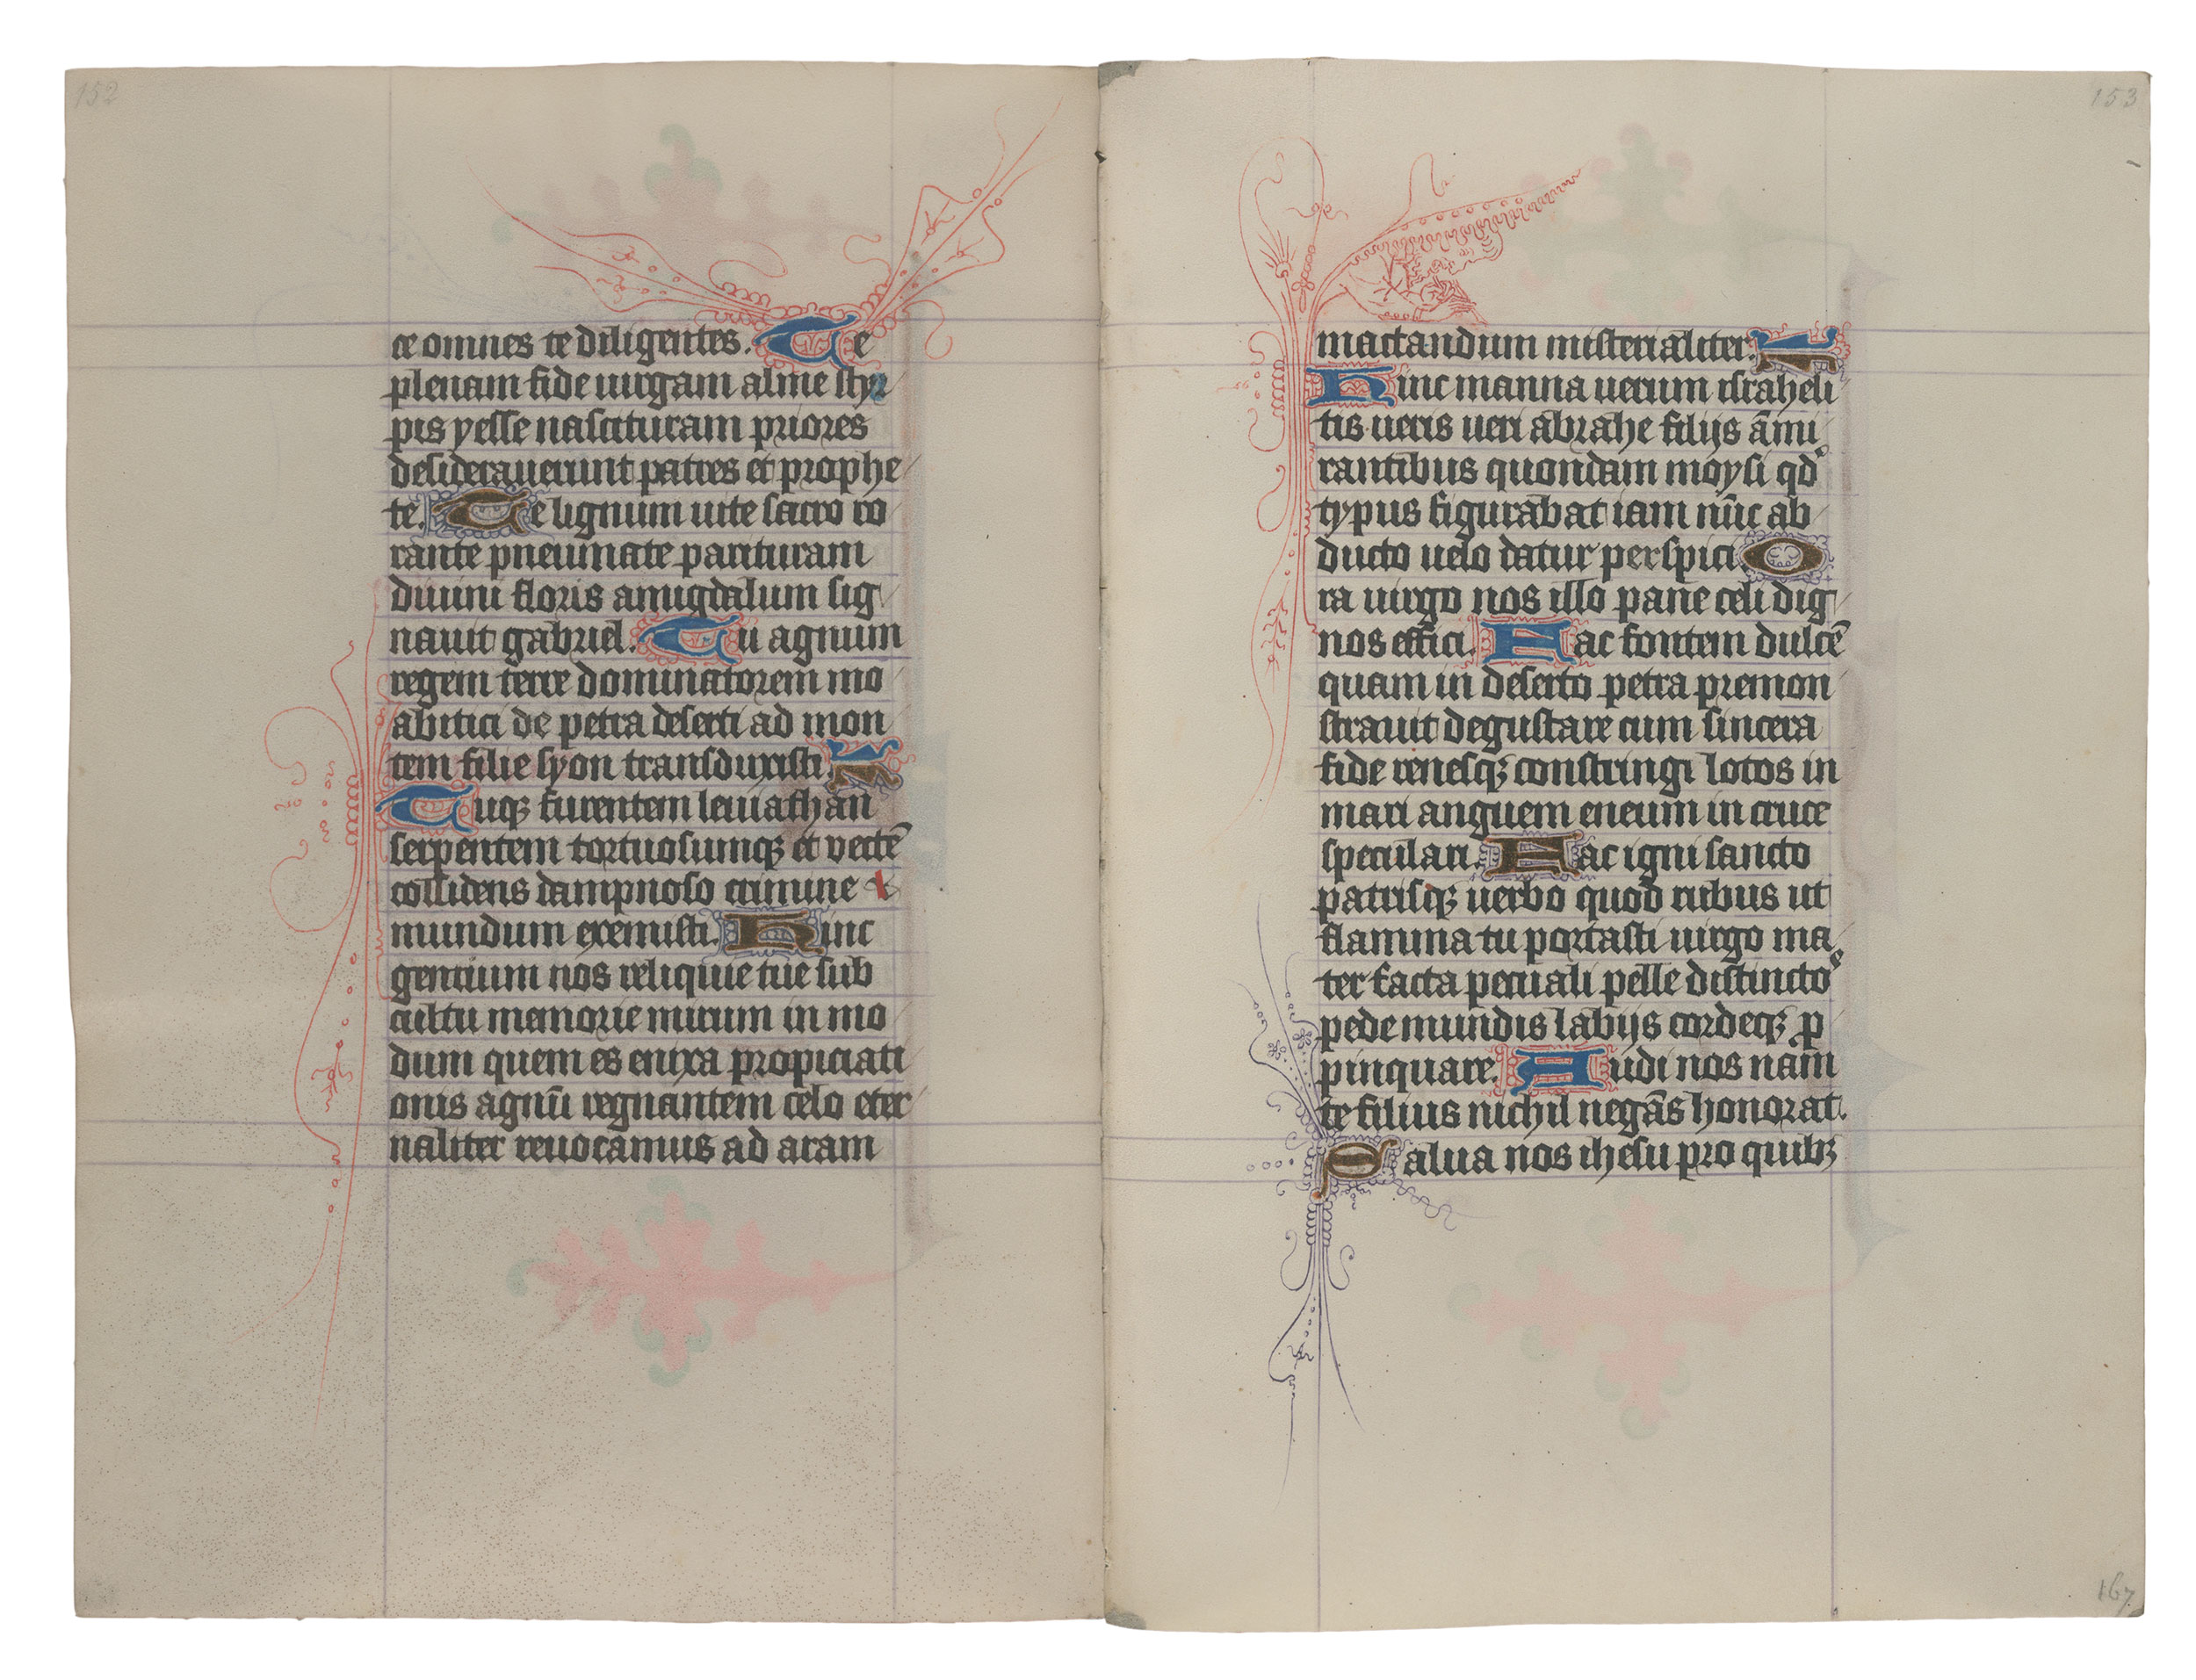 152
te omnes te diligentes. Te
plenam fide uirgam alme styr
pis yesse nascituram priores
desiderauerunt patres et prophe
te. Te lignum uite sacro ro
rante pneumate parituram
diuini floris amigdalum sig
nauit gabriel. Tu agnum
regem terre dominatorem mo
abitici de petra deserti ad mon
tem filie syon transduxisti.
Tuqꝫ furentem leuiathan
serpentem tortuosumqꝫ et vectē
collidens dampnoso crimine
mundum exemisti. Hinc
gentium nos reliquie tue sub
cultu memorie mirum in mo
dum quem es enixa propiciati
onis agnū regnantem celo eter
naliter reuocamus ad aram
153
mactandum misterialiter.
Hinc manna uerum israheli
tis ueris ueri abrahe filijs āmi
rantibus quondam moysi qd
typus figurabat iam nūc ab
ducto uelo datur perspici O
ra uirgo nos illo pane celi dig
nos effici. Fac fontem dulcē
quam in deserto petra premon
strauit degustare cum sincera
fide renesqꝫ constringi lotos in
mari anguem eneum in cruce
speculari. Fac igni sancto
patrisqꝫ uerbo quod rubus ut
flamma tu portasti uirgo ma
ter facta pecuali pelle distincto
pede mundis labijs cordeqꝫ p
pinquare. Audi nos nam
te filius nichil negās honorat.
Salua nos ihesu pro quibꝫ
167